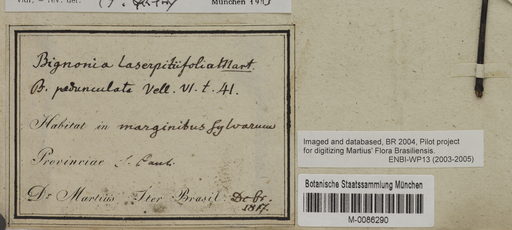 München
Bignonia laserpitiifolia Mart.
B. pedunculata Vell. VI. t. 41.
Habitat in marginibus sylvarum
Provinciae S. Paul.
Dr Martius Iter Brasil. Decbr.
1817.
Imaged and databased, BR 2004, Pilot project
for digitizing Martius' Flora Brasiliensis.
ENBI-WP13 (2003-2005)
Botanische Staatssammlung München
M-0086290